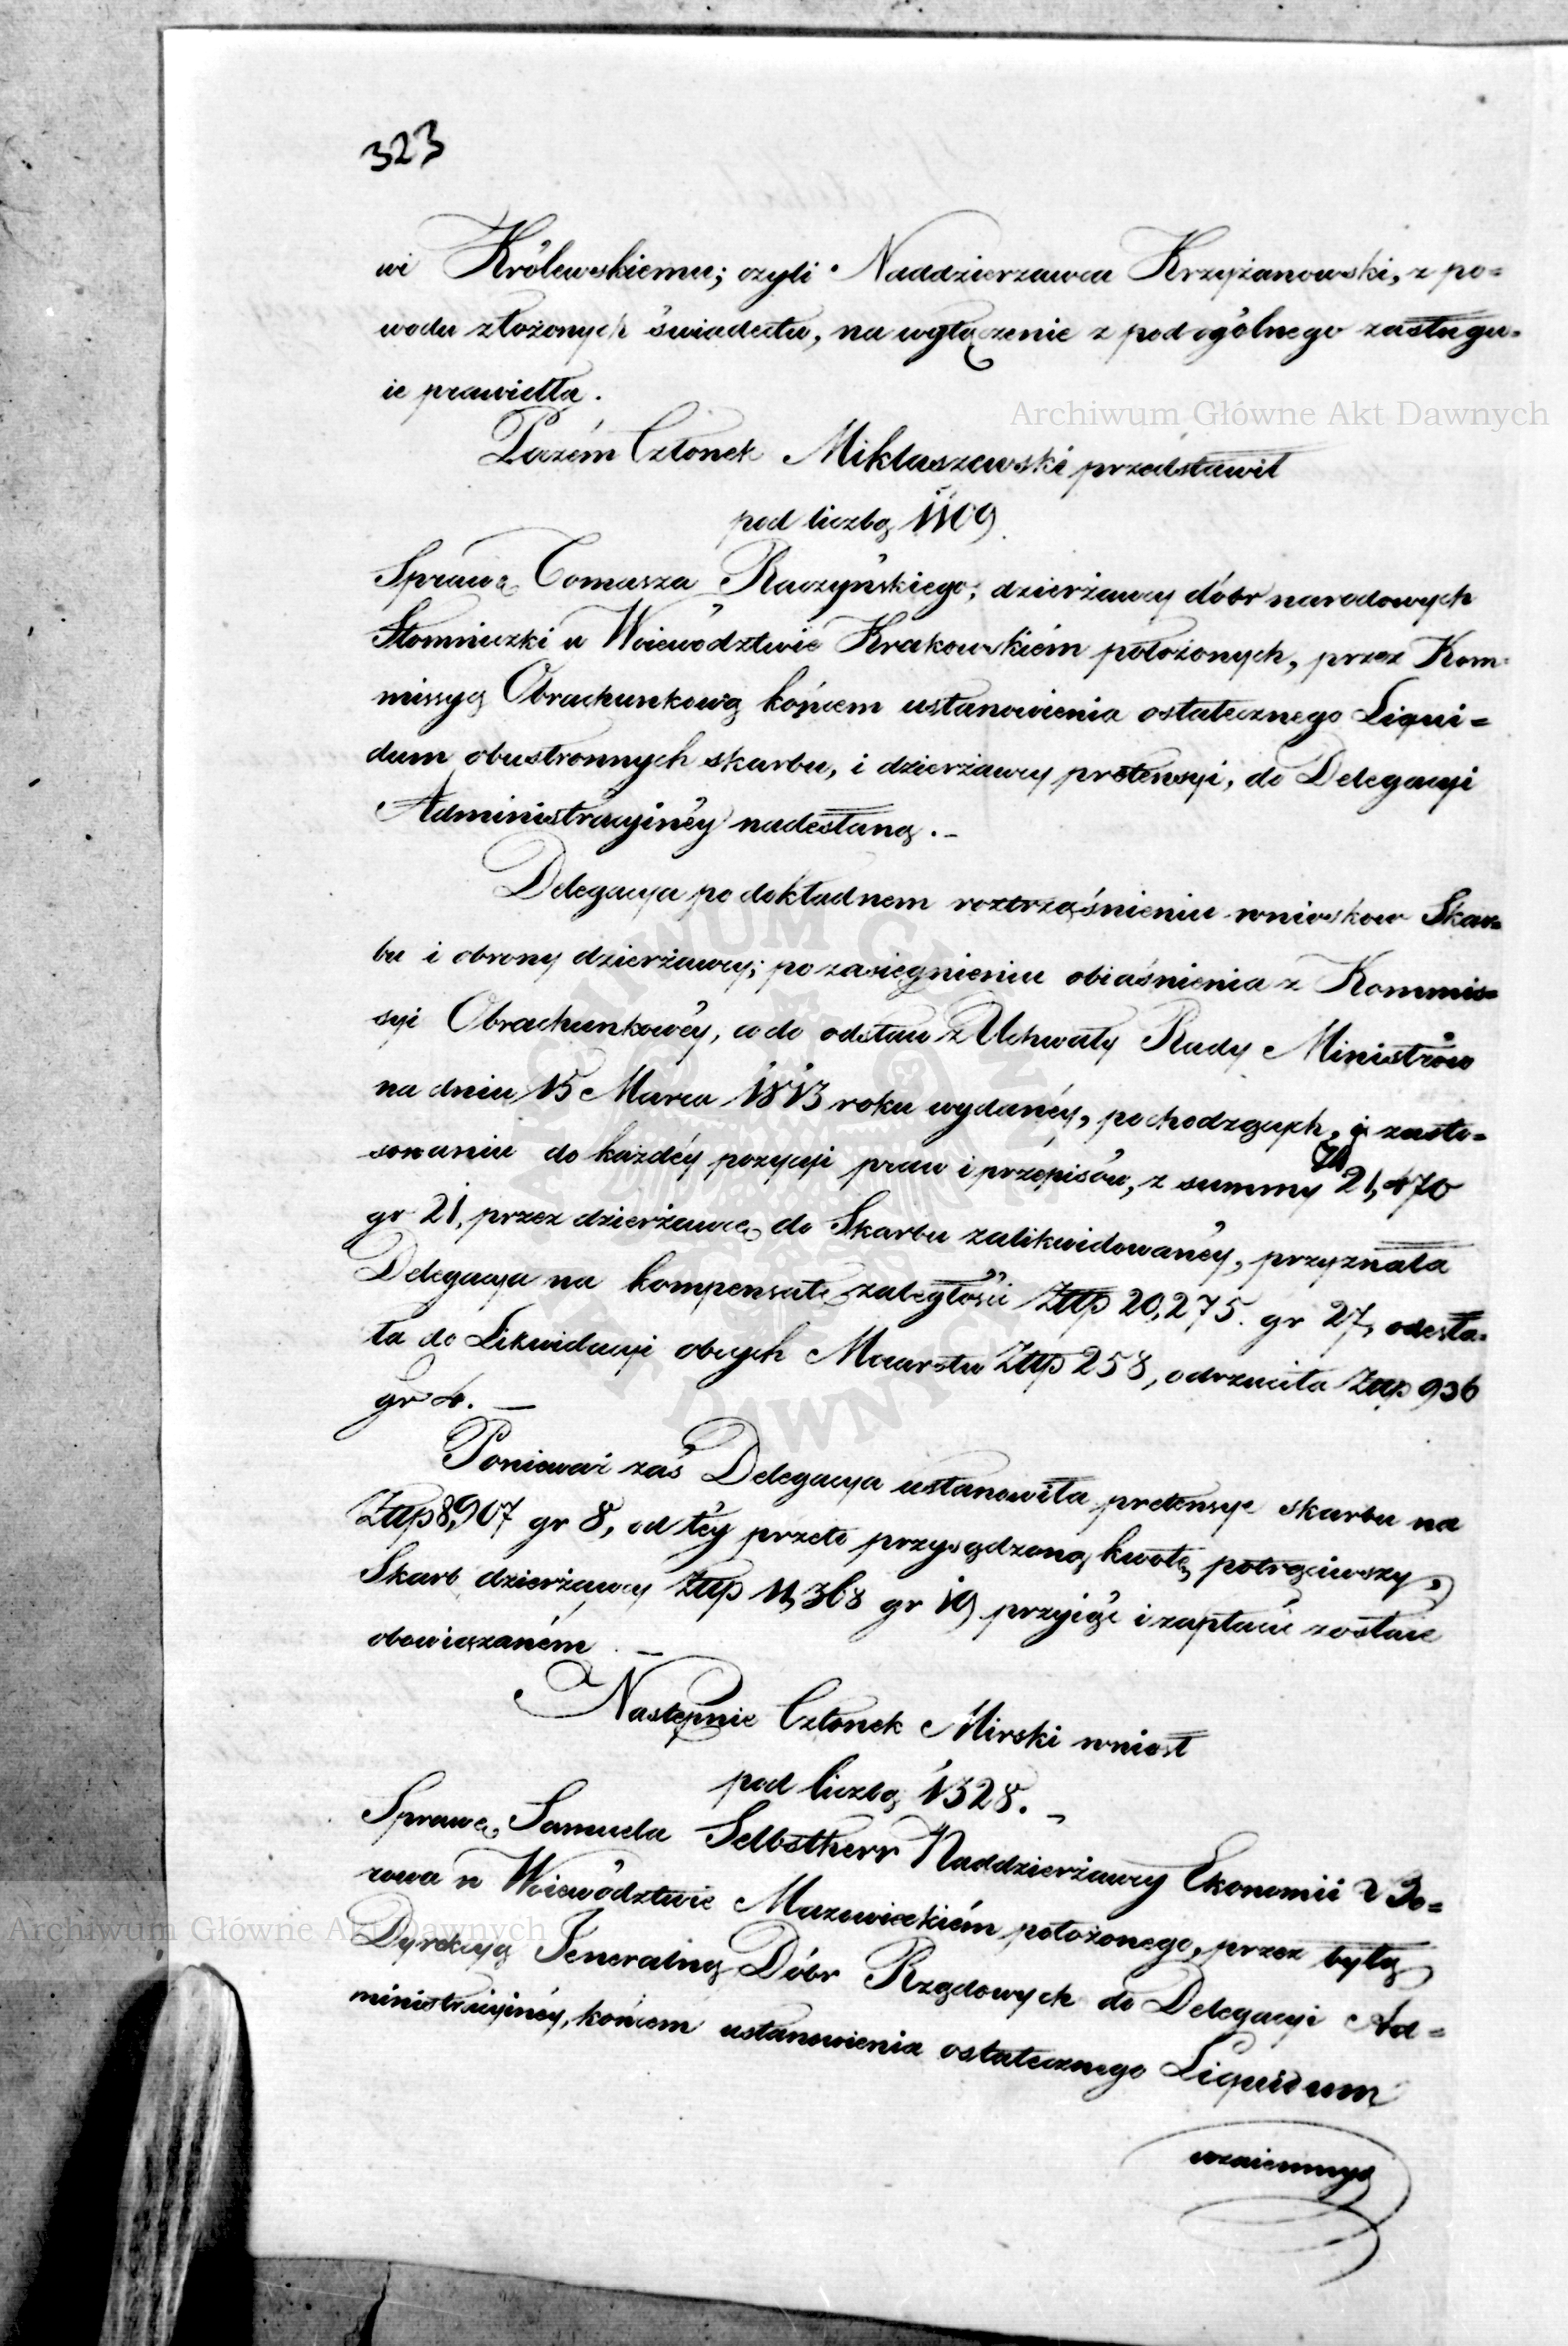 323
wi Królewskiemu; czyli Naddzierzawca Krzyżanowski, z po=
wodu złożonych świadectw, na wyłączenie z pod ogólnego zasługu=
ie prawidła.
Archiwum Główne Akt Dawnych
Poczém Członek Miklaszewski przedstawił
pod liczbą 1109.
Sprawę Tomasza Raczyńskiego, dzierżawcy dóbr narodowych
Słomniczki w Woiewództwie Krakowskiém położonych, przez Kom=
missyą Obrachunkową końcem ustanowienia ostatecznego Liqui=
dum obustronnych skarbu, i dzierżawcy pretensyi, do Delegacyi
Administracyinéy nadesłaną.–
Delegacya po dokładnem roztrząśnieniu wniosków Skar=
bu i obrony dzierżawcy; po zasięgnieniu obiaśnienia z Kommis=
syi Obrachunkowéy, co do odstaw z Uchwały Rady Ministrów
na dniu 15 Marca 1813 roku wydanéy, pochodzących, i zasto=
sowaniu do każdéy pozycyi praw i przepisów, z summy Zł 21,470
gr 21, przez dzierżawcę do Skarbu zalikwidowanéy, przyznała
Delegacya na kompensatę zaległości Złłp 20,275. gr 27, odesła=
ła do Likwidacyi obcych Mocarstw Złłp 258, odrzuciła Złłp 936
gr 4. —
Ponieważ zaś Delegacya ustanowiła pretensye skarbu na
Złłp 8,907 gr 8, od téy przeto przysądzoną kwotę potrąciwszy,
Skarb dzierżawcy Złłp 11,368 gr 19 przyiąć i zapłacić zostaie
obowiązaném. —
Następnie Członek Mirski wniosł
pod liczbą 1328. –
Sprawę Samuela Selbstherr Naddzierżawcy Ekonomii
rowa w Woiewództwie Mazowieckiém położonego, przez byłą
Archiwum Główne Akt Dawnych
Dyrekcyą Jeneralną Dóbr Rządowych do Delegacyi Ad=
ministracyinéy, końcem ustanowienia ostatecznego Liquidum
wzaiemnych